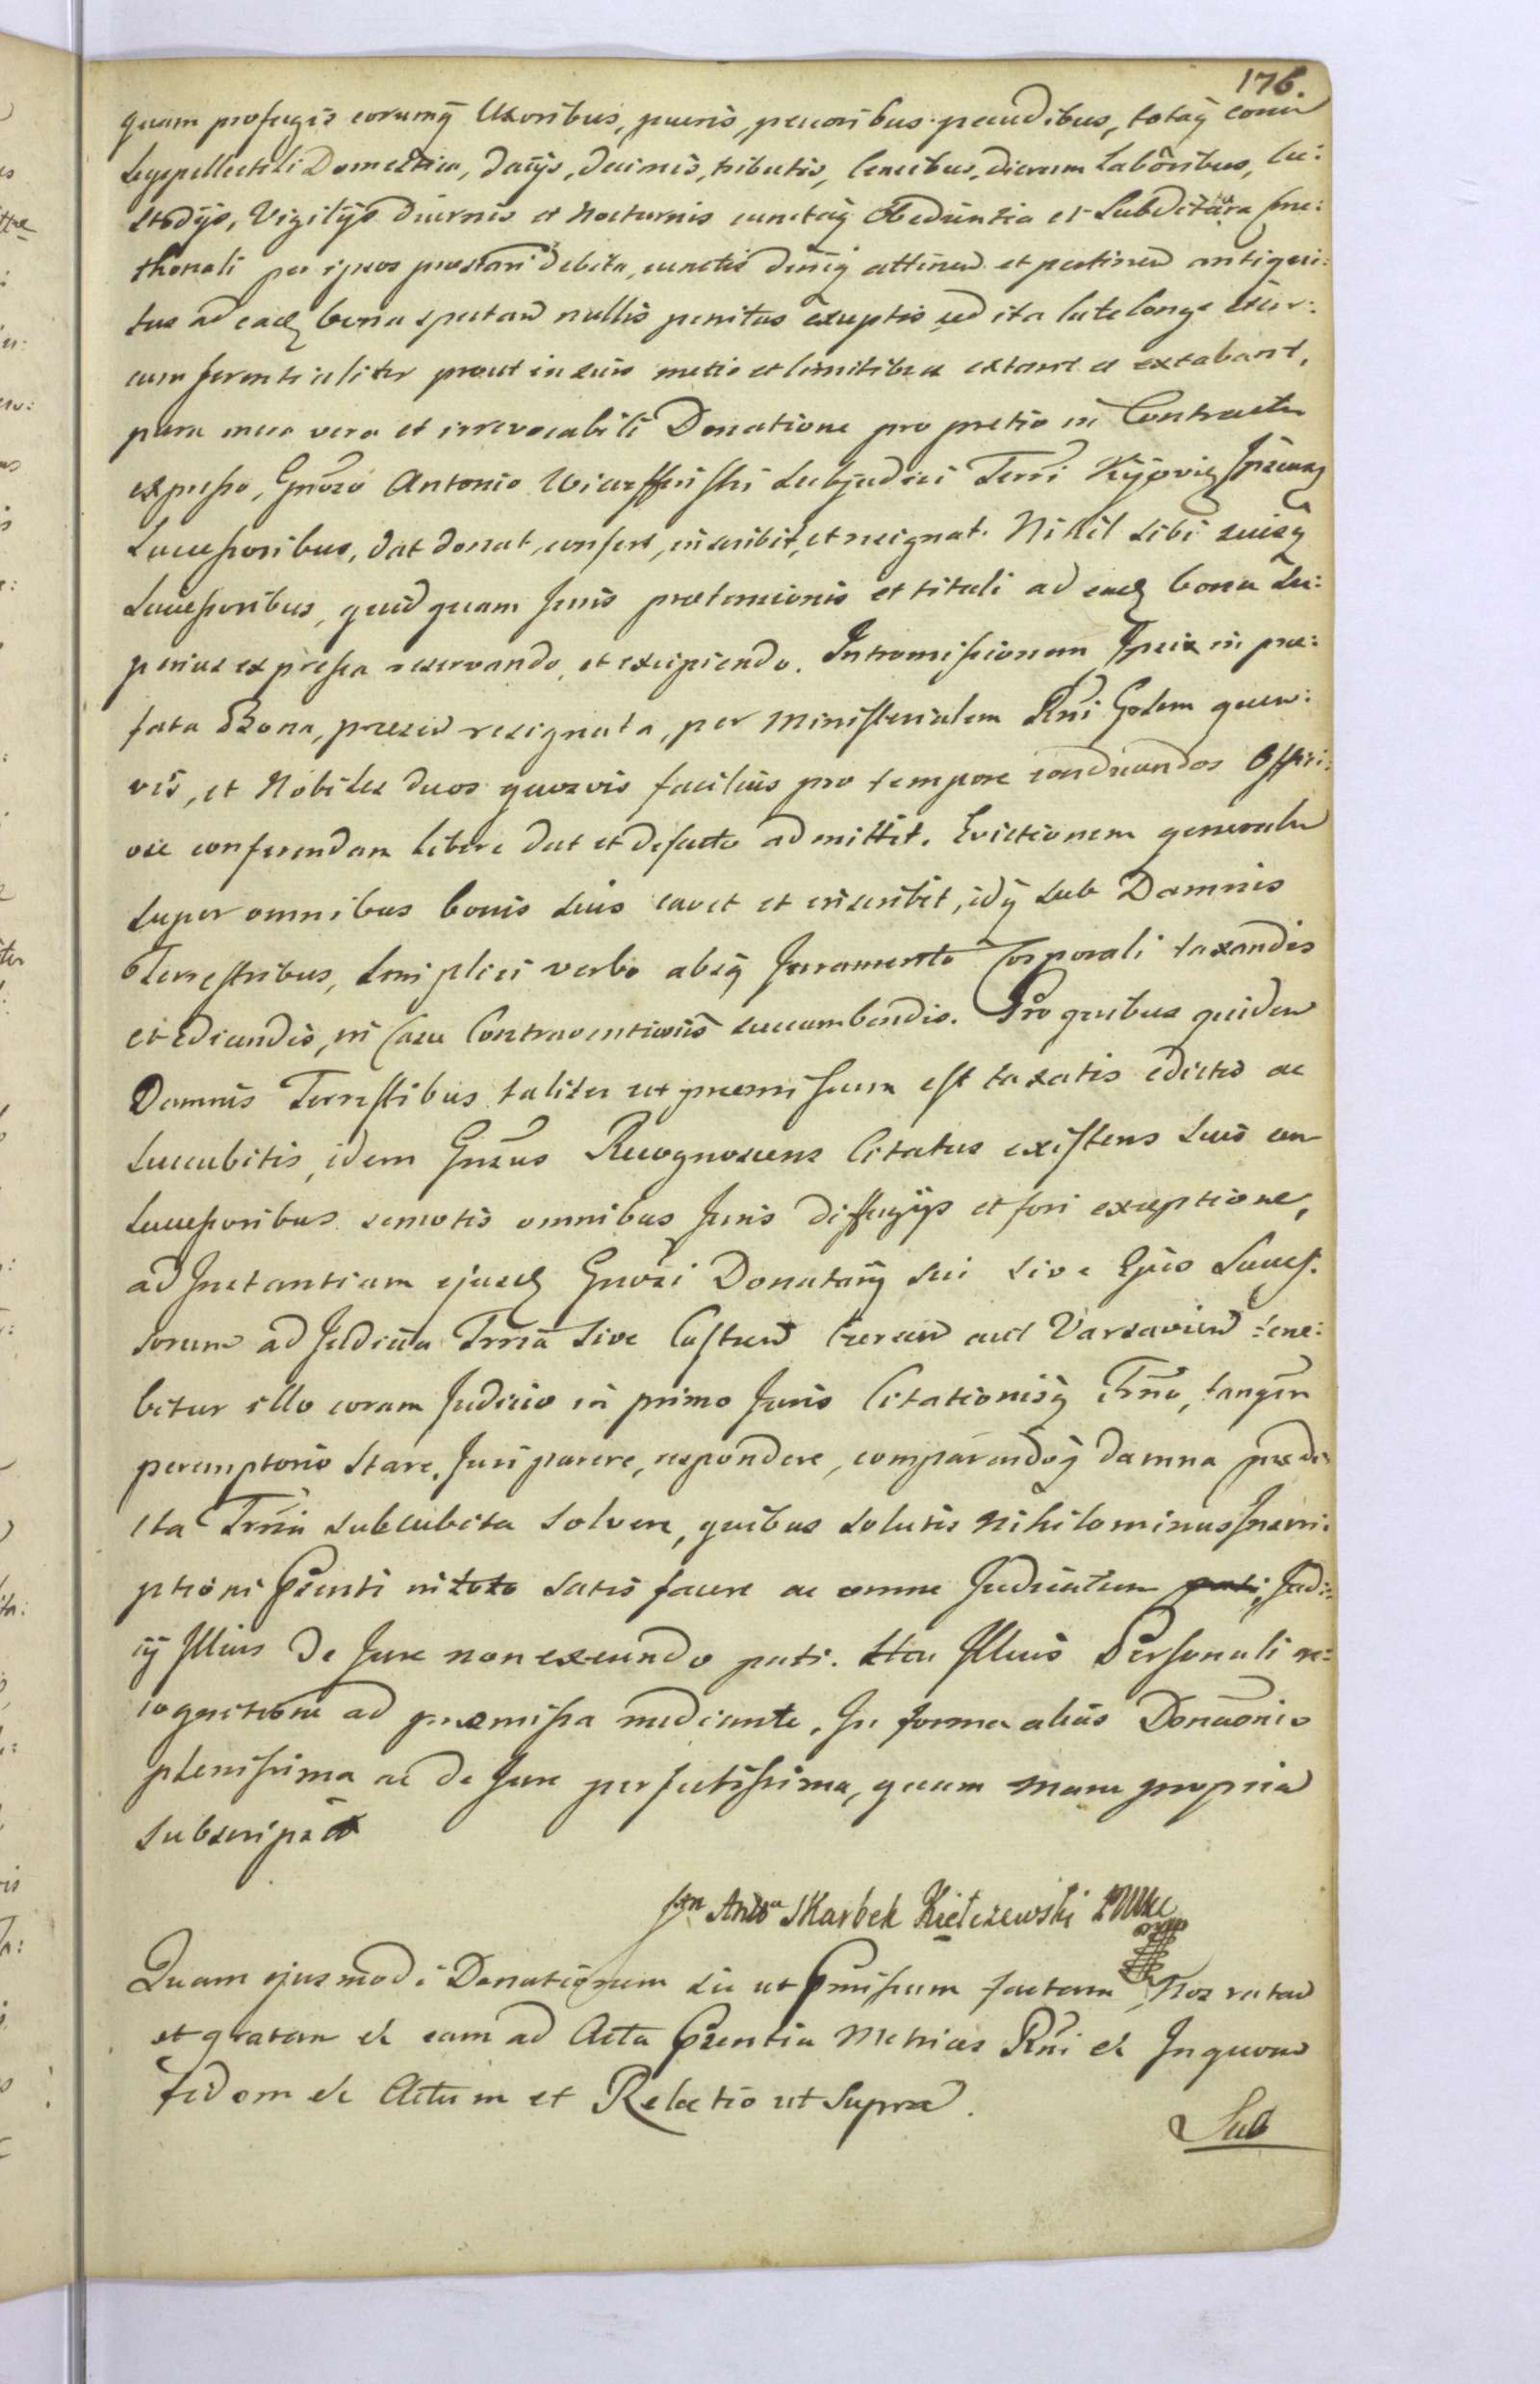 176.
quam profugis eorumq̃ Uxoribus, pueris, pecoribus pecudibus, totaq̃ eorum
Supellectili Domestica, dacijs, decimis, tributis, Censibus, dierum Laboribus, Cu:
stodijs, Vigilijs diurnis et Nocturnis cunctaq̃ Obedientia et Subditura Cme:
thonali per ipsos praestari debita, cunctis deniq̃ attinen et pertinen antiqui:
tus ad eadẽ bona spectan nullis penitus exceptis sed ita late longe cir:
cumferentialiter prout in suis metis et limitibus extant et extabant,
pura mera vera et irrevocabili Donatione pro pretio in Contractu
expresso, Gnõso Antonio Subjudici Terri Kijovien Ipsiusq̃
Successoribus, dat donat, confert, inscribit, et resignat. Nihil sibi suisq̃
Successoribus, quidquam Juris praetensionis et tituli ad eadẽ bona Su:
perius expressa reservando, et excipiendo. Intromissionem Ipsis in prae:
fata Bona, praesen resignata, per Ministerialem Rñi Gnlem quem:
vis, et Nobiles duos quosvis facilius pro tempore conducendos Offici:
ose conferendam libere dat et defacto admittit. Evictionem generalem
super omnibus bonis suis cavet et inscribit, idq̃ sub Damnis
Terrestribus, simplici verbo absq̃ Juramento Corporali taxandis
et edicendis, in Casu Contraventionis succumbendis. Pro quibus quidem
Damnis Terrestribus taliter ut praemissum est taxatis edictis ac
succubitis, idem Gnsus Recognoscens Citatus existens suis cum
Successoribus semotis omnibus Juris diffugijs et fori exceptione,
ad Instantiam ejusdẽ Gnõsi Donatarij sui sive Ejus Succes:
sorum ad Judicia Trria sive Castren Czersen aut Varsavien tene:
bitur illo coram Judicio in primo Juris Citationisq̃ Trño, tanqm
peremptorio Stare, Juri parere, respondere, comparendoq̃ damna praedi
cta Trria succubita Solvere, quibus solutis nihilominus Inscri:
ptioni Psenti in toto satis facere ac omne Judicatum pati, Judi:
cij Illius de Jure non exeundo pati. Sta Illius Personali re:
cognitione ad praemissa mediante, In forma alias Donãonis
plenissima ac de Jure perfectissima, quam manu propria
subscripsit
Jan Anto Skarbek Kiełczewski
Quam ejusmodi Donationem sic ut Pmissum factam, Nos ratam
et gratam &c eam ad Acta Psentia Metrices Rñi &c Inquorum
fidem &c Actum et Relatio ut Supra.
Sub